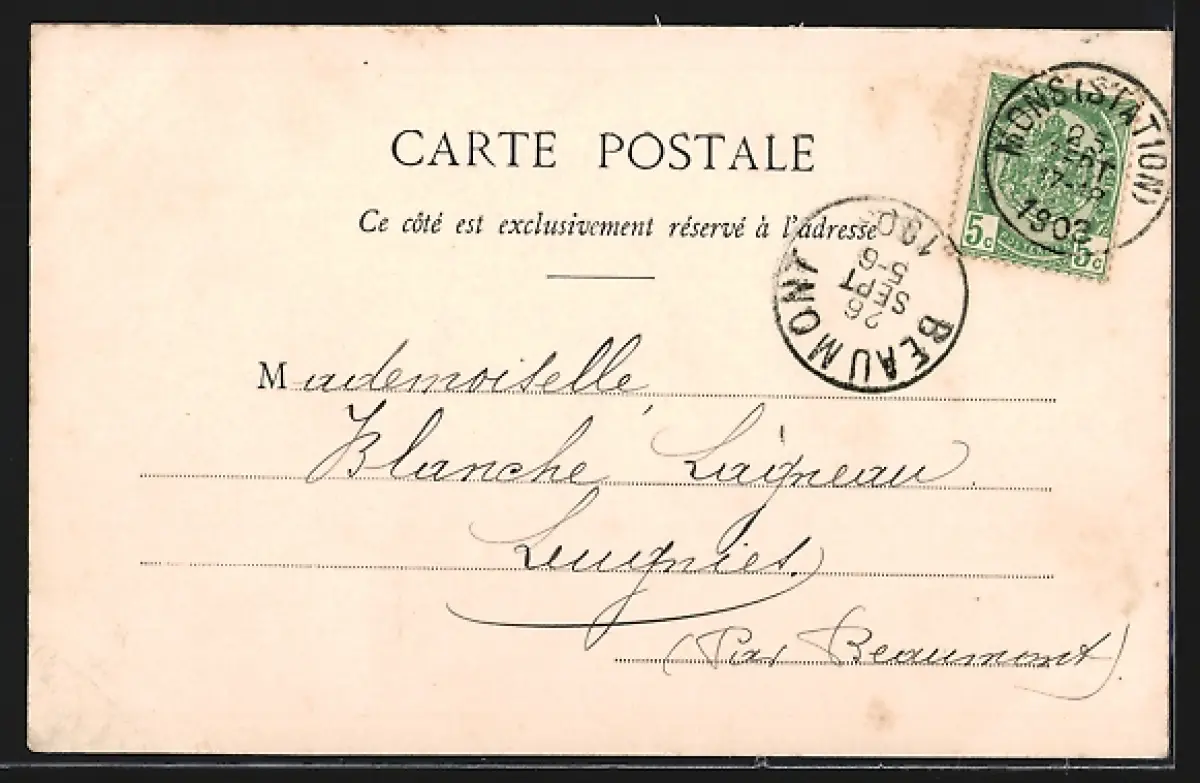 CARTE POSTALE
Ce côté est exclusivement réservé à l'adresse
MONS (STATION)
25
SEPT
17-18
1903
5c 5c
BEAUMONT
26
SEPT
5-6
190
Mademoiselle,
Blanche Laigneau.
Leugnies.
(Par Beaumont)